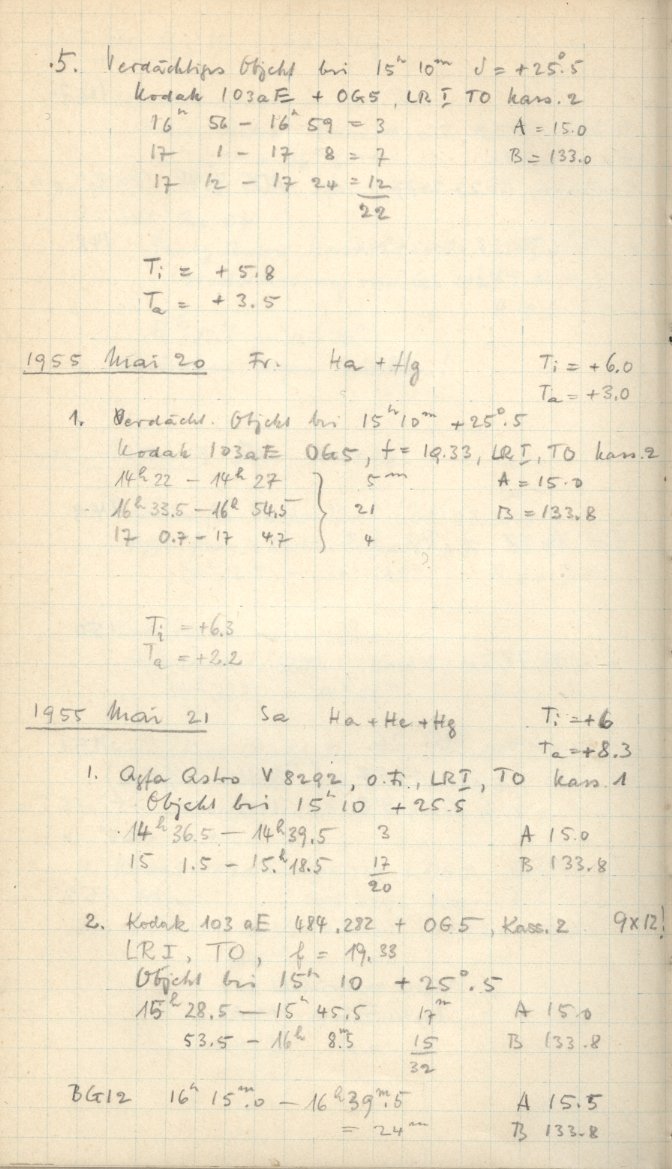 5. Verdächtiges Objekt bei 15ʰ 10ᵐ δ = +25°.5
Kodak 103aE + OG5, LR I TO Kass. 2
16ʰ 56 – 16ʰ 59 = 3 A = 15.0
17 1 – 17 8 = 7 B = 133.0
17 12 – 17 24 = 12
22
Ti = + 5.8
Ta = + 3.5
1955 Mai 20 Fr. Ha + Hg Ti = +6.0
Ta = +3.0
1. Verdächt. Objekt bei 15ʰ 10ᵐ +25°.5
Kodak 103aE OG5, f = 19.33, LR I, TO Kass. 2
14ʰ 22 – 14ʰ 27 } 5ᵐ A = 15.0
16ʰ 33.5 – 16ʰ 54.5 } 21 B = 133.8
17 0.7 – 17 4.7 } 4
Ti = +6.3
Ta = +2.2
1955 Mai 21 Sa Ha + He + Hg Ti = +6
Ta = +8.3
1. Agfa Astro V 8292, o. Fi., LR I, TO Kass. 1
Objekt bei 15ʰ 10 +25.5
14ʰ 36.5 – 14ʰ 39.5 3 A 15.0
15 1.5 – 15.ʰ 18.5 17 B 133.8
20
2. Kodak 103 aE 484.282 + OG5, Kass. 2 9x12!
LR I, TO, f = 19.33
Objekt bei 15ʰ 10 +25°.5
15ʰ 28.5 – 15ʰ 45.5 17ᵐ A 15.0
53.5 – 16ʰ 8ᵐ.5 15 B 133.8
32
BG12 16ʰ 15ᵐ.0 – 16ʰ 39ᵐ.5 A 15.5
= 24ᵐ B 133.8